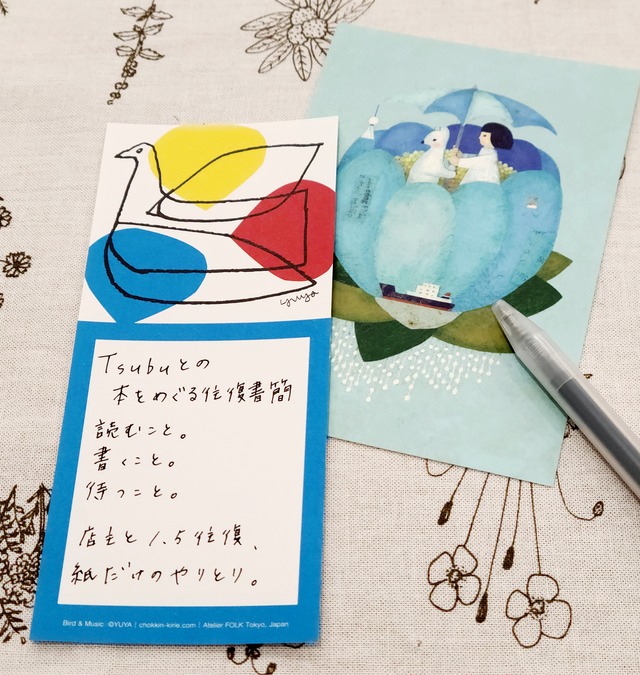 yuya
Tsubuとの
本をめぐる往復書簡
読むこと。
書くこと。
待つこと。
店主と1.5往復、
紙だけのやりとり。
Bird & Music ©YUYA | chokkin-kirie.com | Atelier FOLK Tokyo, Japan